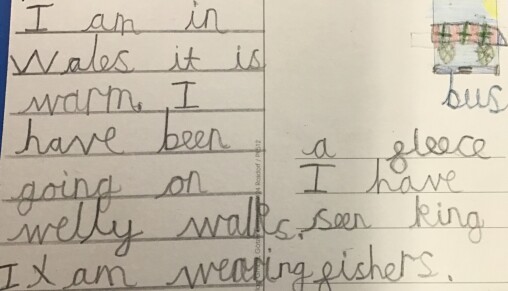 I am in
Wales it is
warm. I
have been
going on
welly walks.
I X am wearing
bus
a gleece
I have
seen king
gishers.